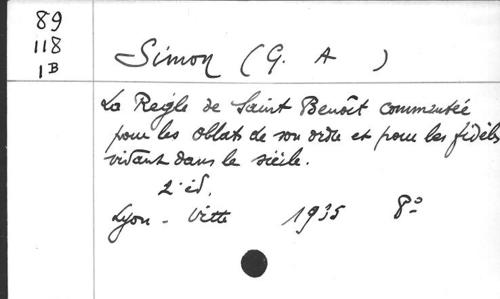 89
118
1B
Simon (G. A )
La Règle de Saint Benoît commentée
pour les oblats de son ordre et pour les fidèles
vivant dans le siècle.
2e éd.
Lyon - Vitte 1935 8°